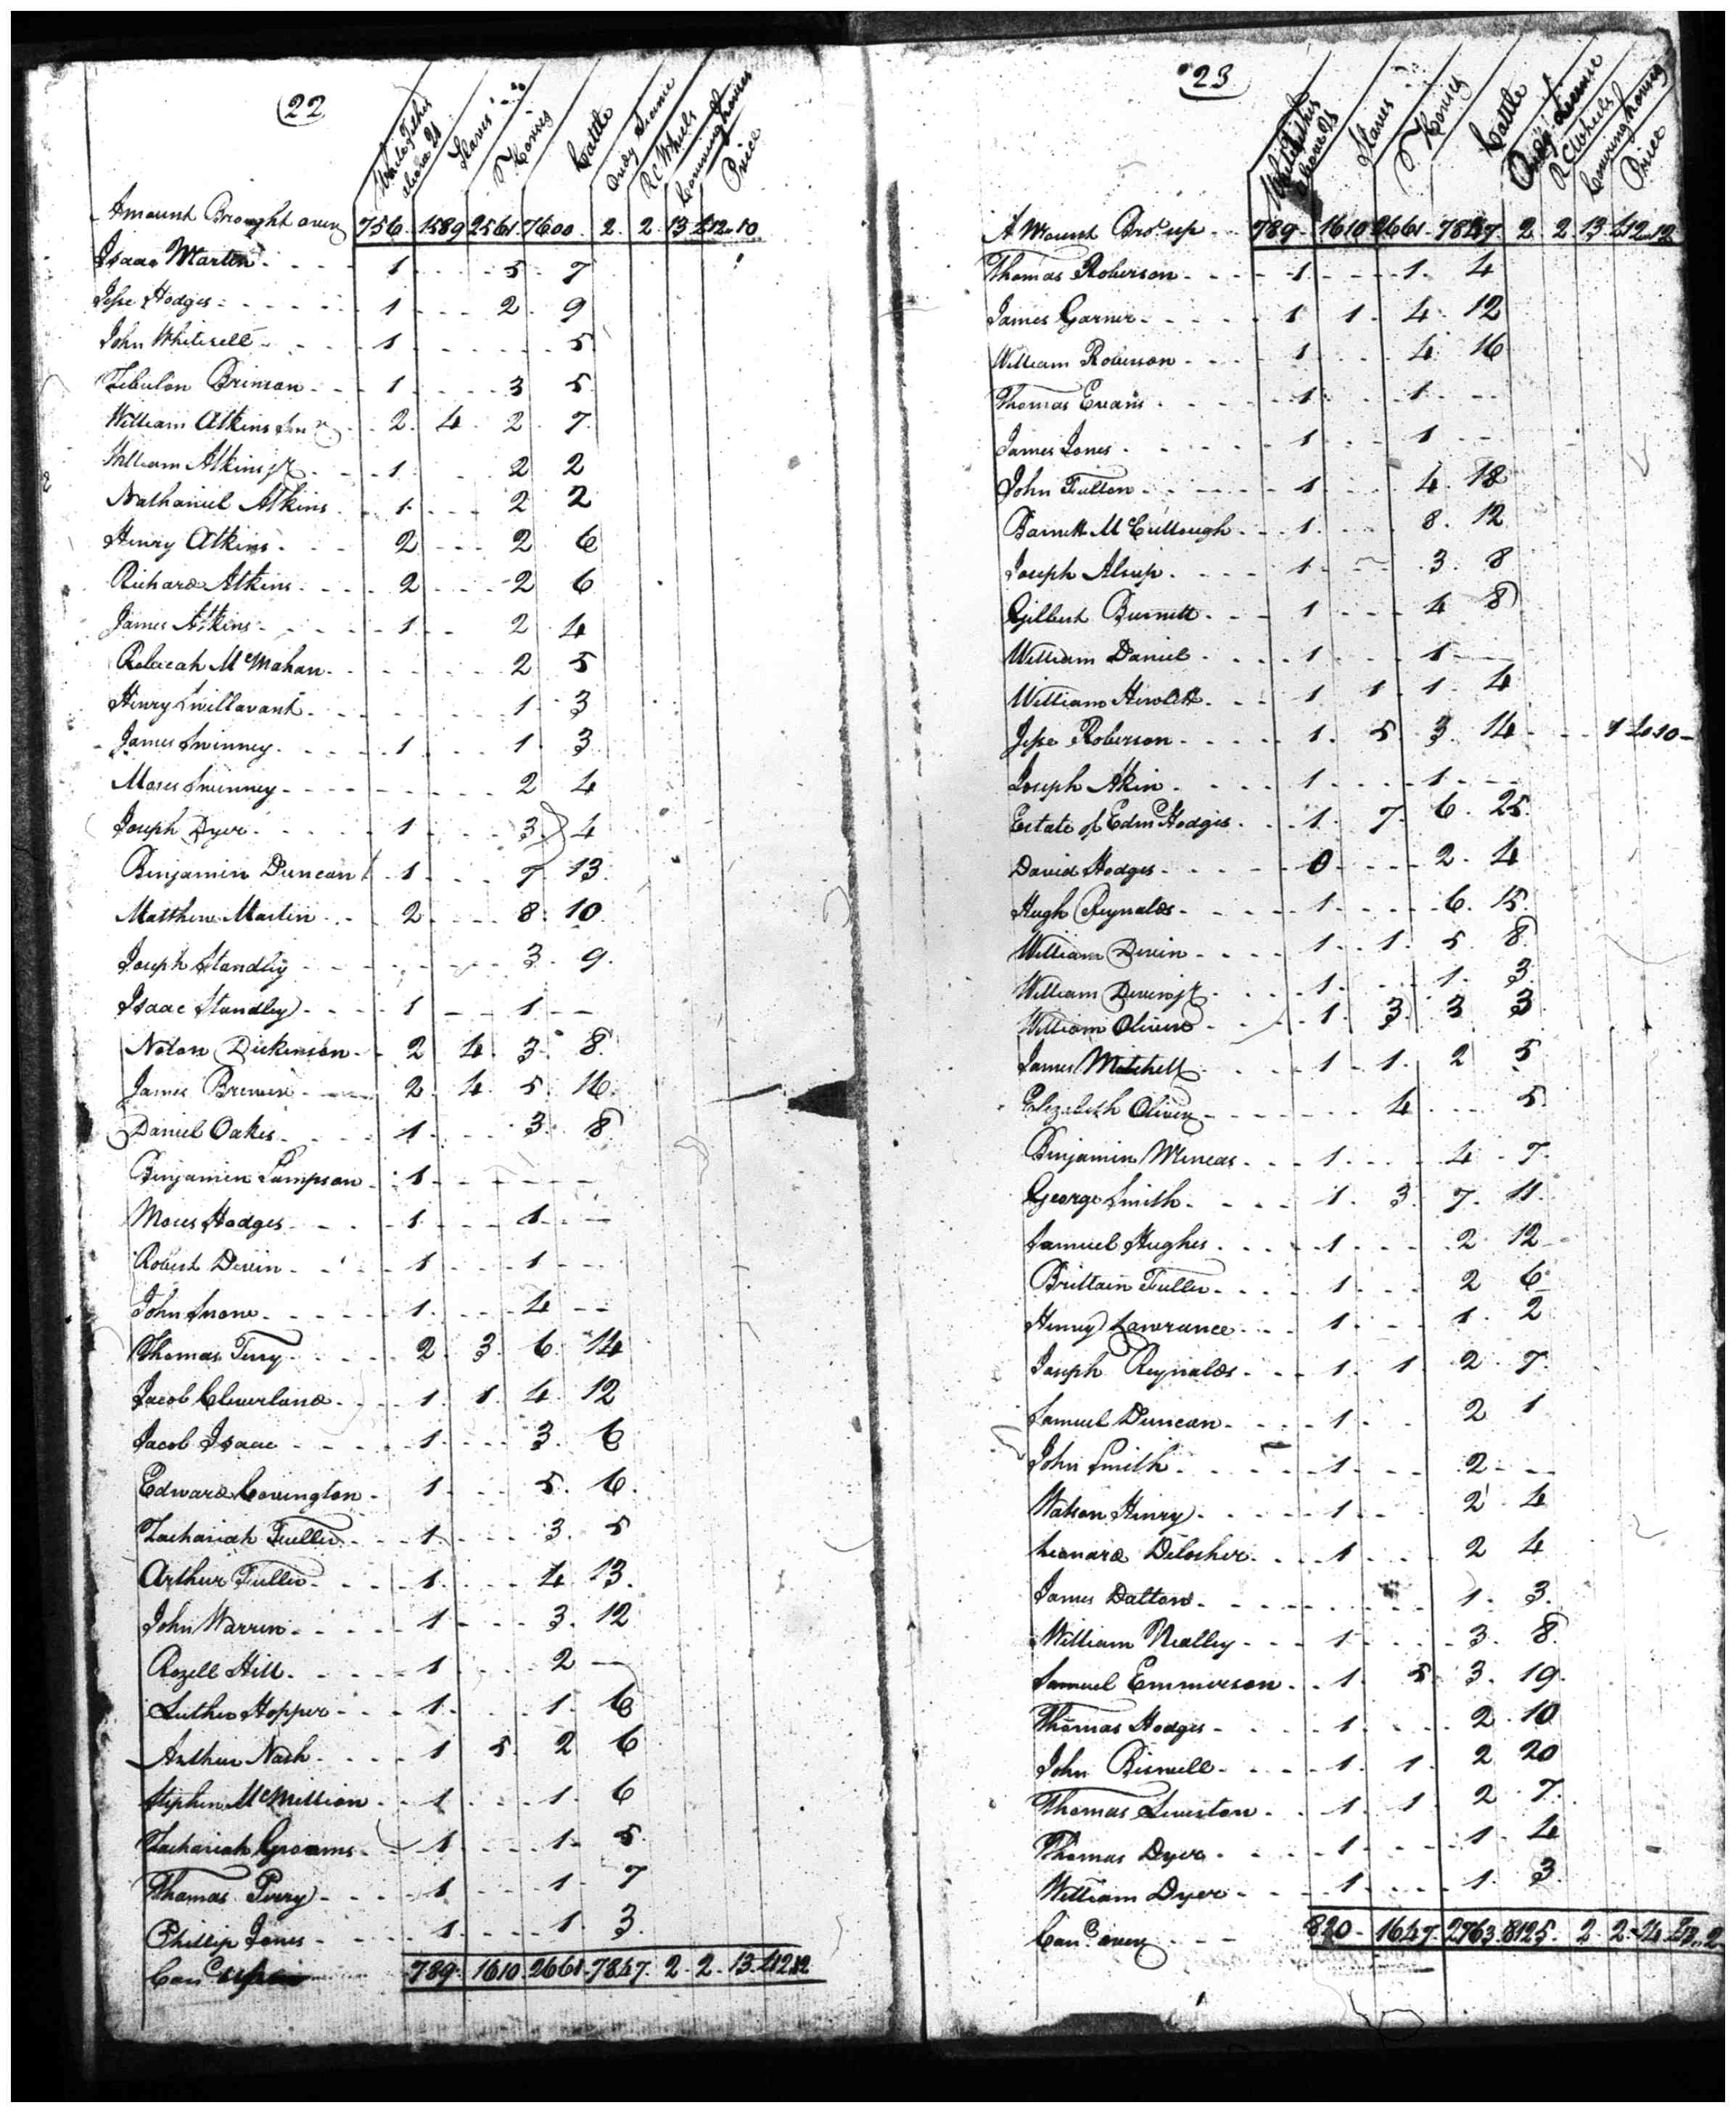 22
White Tithes above 21
Slaves
Horses
Cattle
Ordy License
R C Wheels
Covering horses
Price
Amount Brought over 756 1589 2561 7600 2 2 13 £12 10
Isaac Martin 1 5 7
Jesse Hodges 1 2 9
John Whitesell 1 5
Zebulon Brinson 1 3 5
William Atkins Snr 2 4 2 7
William Atkins jr 1 2 2
Nathaniel Atkins 1 2 2
Henry Atkins 2 2 6
Richard Atkins 2 2 6
James Atkins 1 2 4
Rebecah McMahan 2 5
Henry Swillavant 1 3
James Swinney 1 1 3
Moses Swinney 2 4
Joseph Dyer 1 3 4
Benjamin Duncan 1 7 13
Matthew Martin 2 8 10
Joseph Standley 3 9
Isaac Standley 1 1
Nolon Dickinson 2 4 3 8
James Brewer 2 4 5 16
Daniel Oakes 1 3 8
Benjamin Sampson 1
Moses Hodges 1 1
Robert Devin 1 1
John Snow 1 4
Thomas Terry 2 3 6 14
Jacob Cleverland 1 1 4 12
Jacob Isaac 1 3 6
Edward Covington 1 5 6
Zachariah Fuller 1 3 5
Arthur Fuller 1 4 13
John Warren 1 3 12
Rozell Hill 1 2
Luther Hopper 1 1 6
Arthur Nash 1 5 2 6
Stephen McMillion 1 1 6
Zachariah Grooms 1 1 5
Thomas Perry 1 1 7
Phillip Jones 1 1 3
Card up 789 1610 2661 7847 2 2 13 £12 12
23
White Tithes above 21
Slaves
Horses
Cattle
Ordy License
R C Wheels
Covering horses
Price
Amount Bro up 789 1610 2661 7847 2 2 13 £12 12
Thomas Roberson 1 1 4
James Garner 1 1 4 12
William Roberson 1 4 16
Thomas Evans 1 1
James Jones 1 1
John Fulton 1 4 18
Barnett McCullough 1 8 12
Joseph Alsup 1 3 8
Gilbert Burnett 1 4 8
William Daniel 1 1
William Hewlett 1 1 1 4
Jesse Roberson 1 5 3 14 1 £0 10
Joseph Akin 1 1
Estate of Edm Hodges 1 7 6 25
David Hodges 0 2 4
Hugh Reynolds 1 6 15
William Devin 1 1 5 8
William Devin jr 1 1 3
William Oliver 1 3 3 3
James Mitchell 1 1 2 5
Elezabeth Oliver 4 5
Benjamin Meneas 1 4 7
George Smith 1 3 7 11
Samuel Hughes 1 2 12
Brittain Fuller 1 2 6
Henry Lawrance 1 1 2
Joseph Reynolds 1 1 2 7
Samuel Duncan 1 2 1
John Smith 1 2
Watson Henry 1 2 4
Leonard Delosher 1 2 4
James Dalton 1 3
William Nealley 1 3 8
Samuel Emmerson 1 5 3 19
Thomas Hodges 1 2 10
John Biswell 1 1 2 20
Thomas Leweston 1 1 2 7
Thomas Dyer 1 1 4
William Dyer 1 1 3
Card over 820 1647 2763 8125 2 2 14